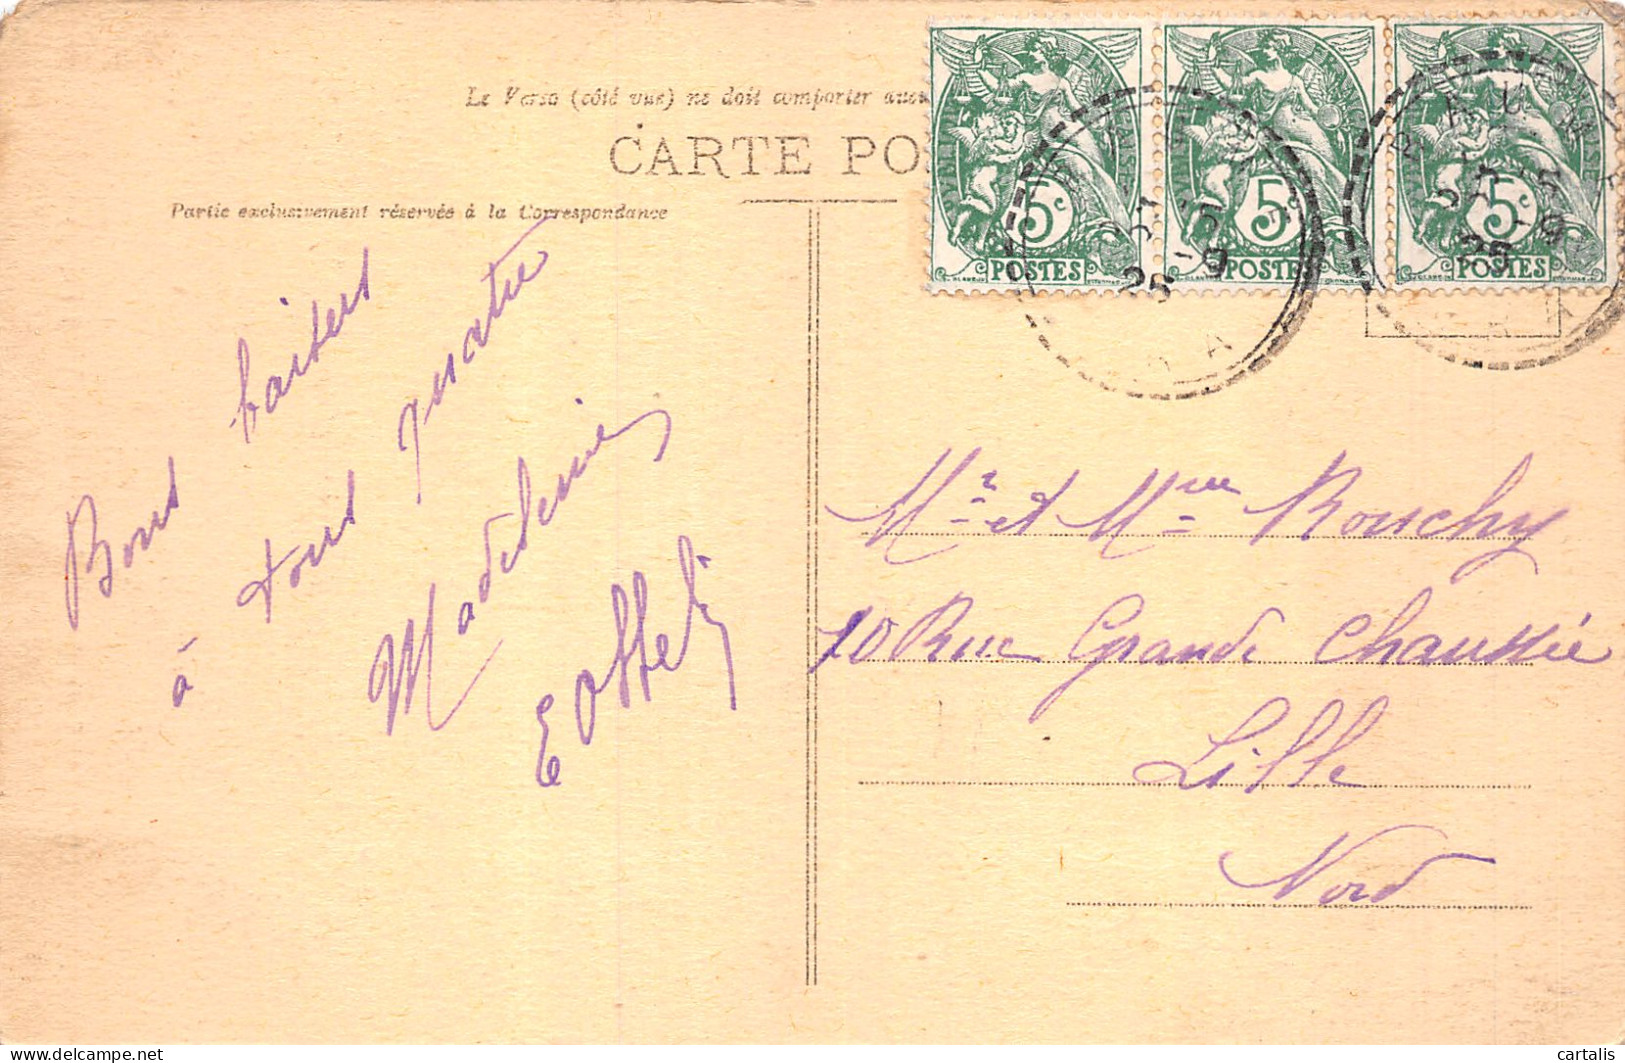 Le Verso (côté vue) ne doit comporter
CARTE PO
Partie exclusivement réservée à la Correspondance
Bons baisers
à tous quatre
Madeleine
5c 5c 5c
POSTES POSTES POSTES
25 -9
25 -9
Mr et Mme Rouchy
10 Rue Grande Chaussée
Lille
Nord
delcampe.net
cartalis